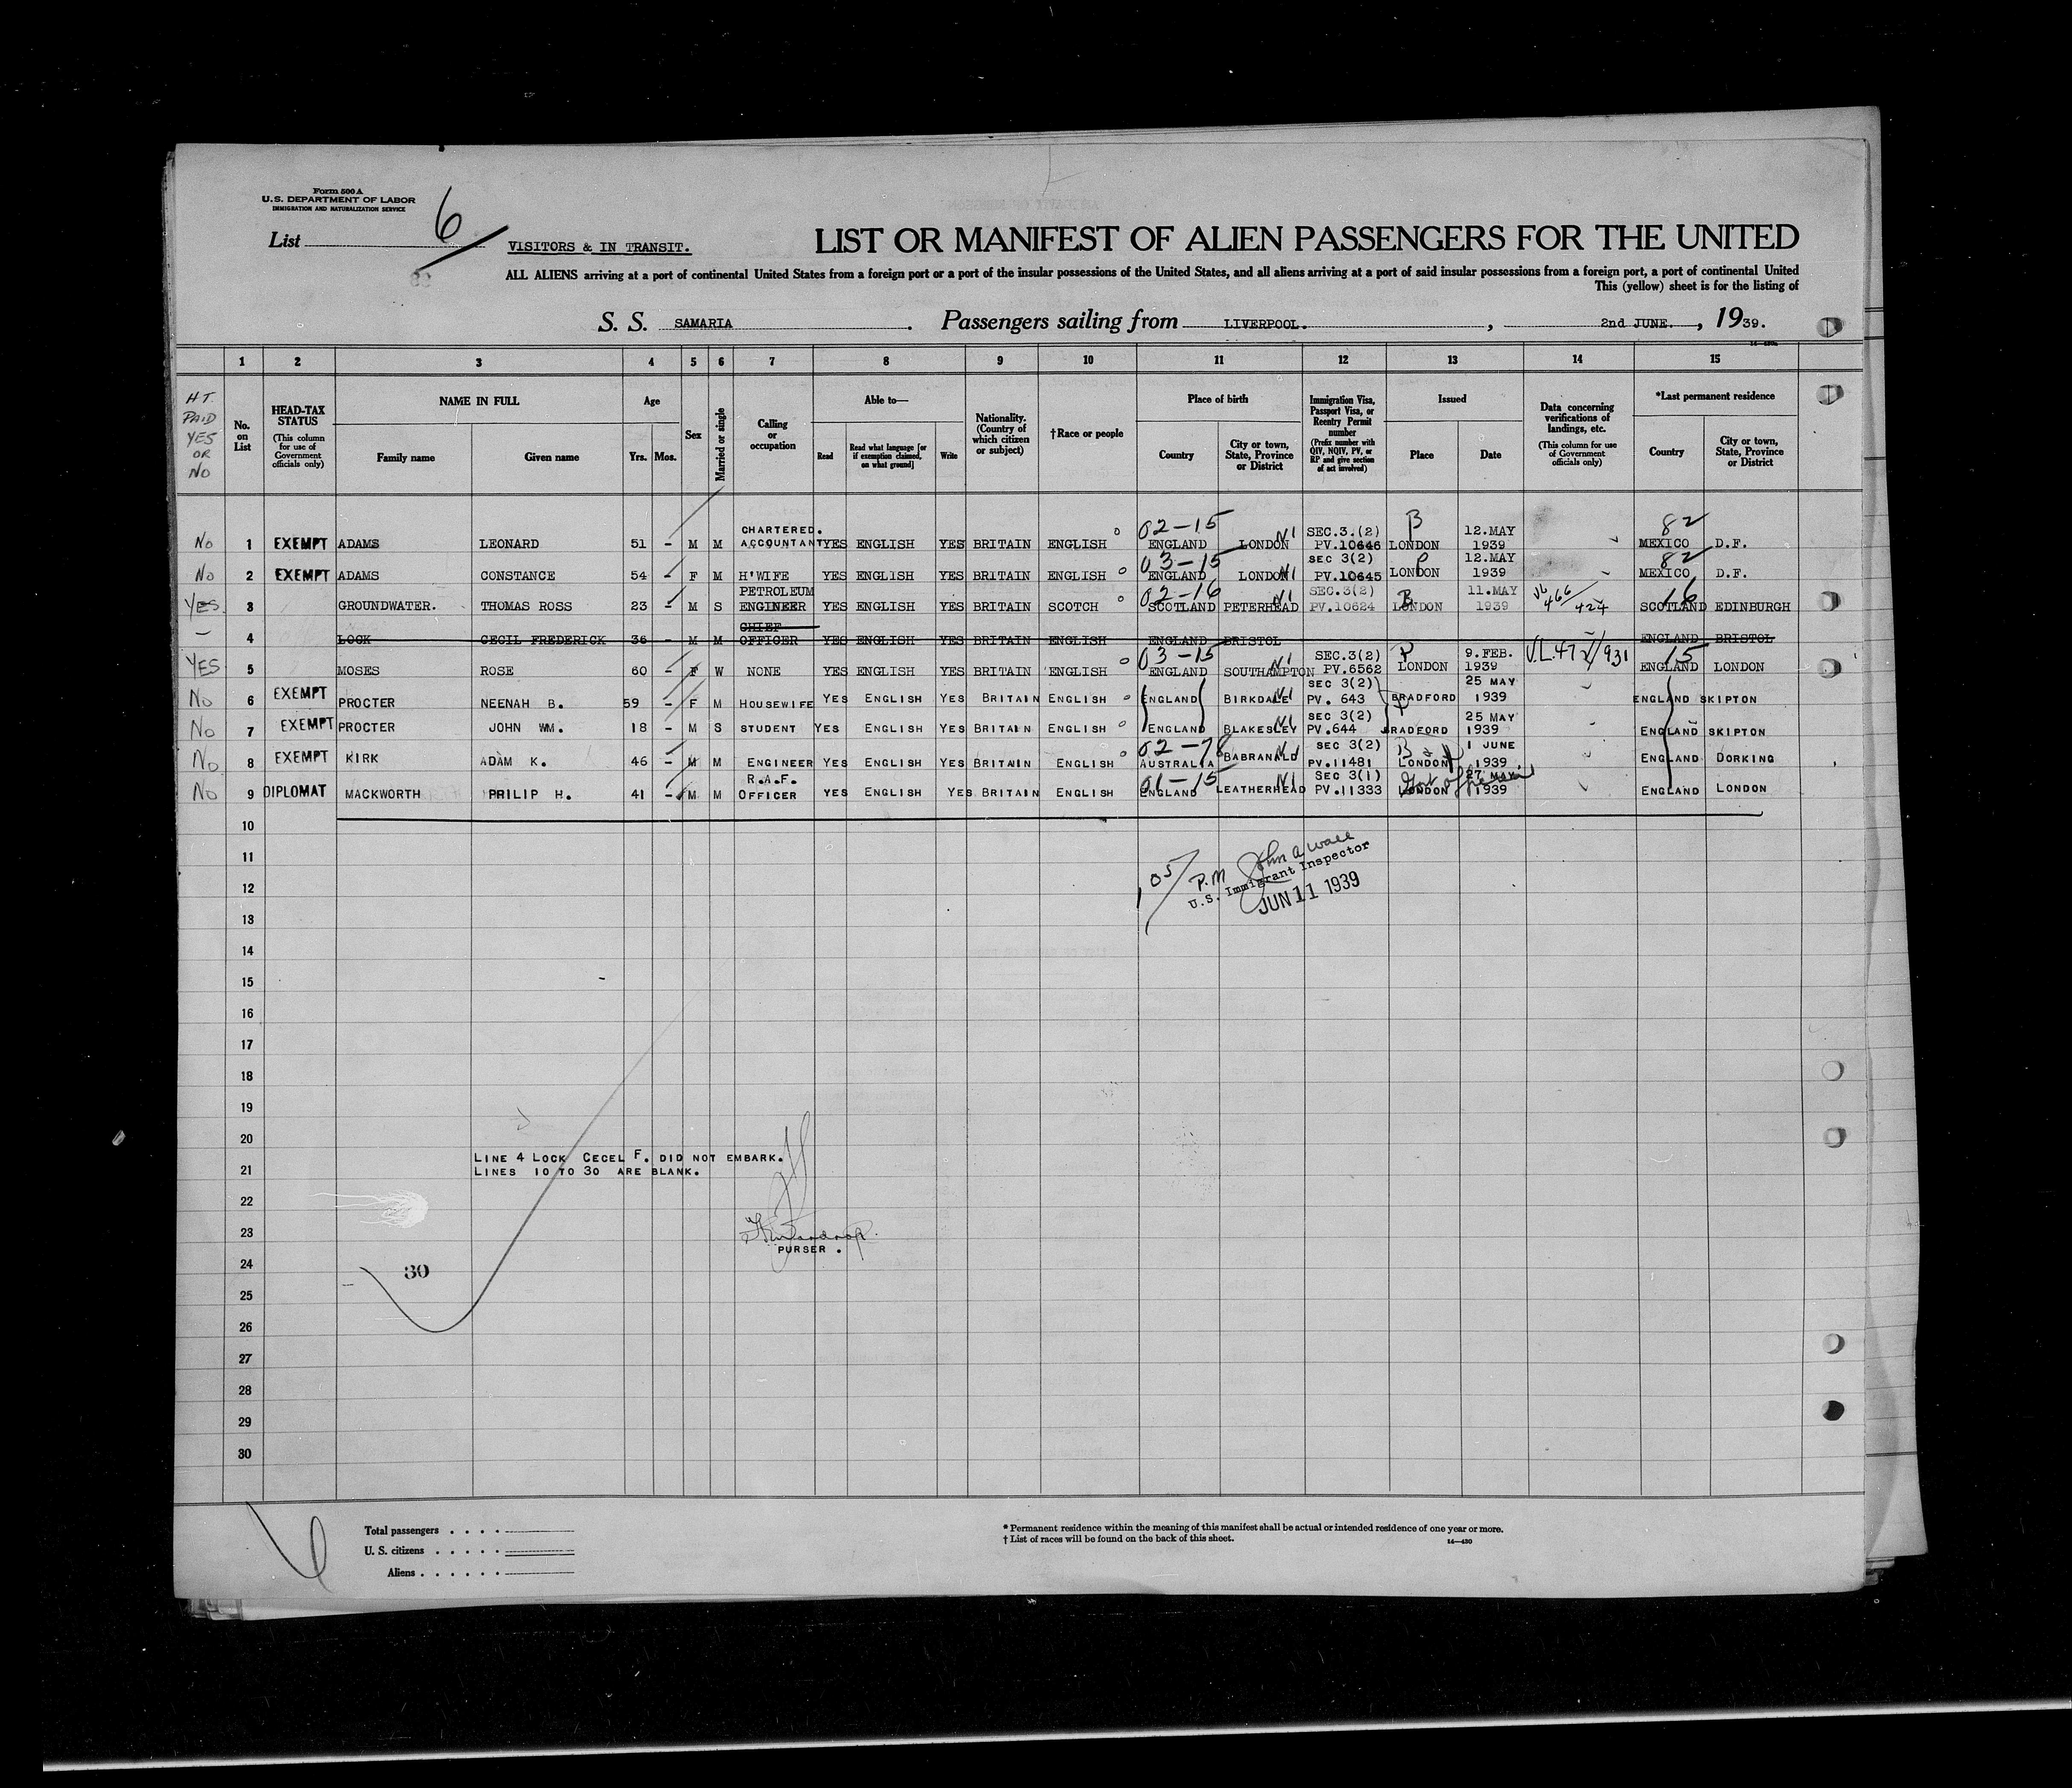 Form 500 A
U.S. DEPARTMENT OF LABOR
IMMIGRATION AND NATURALIZATION SERVICE
List 6
VISITORS & IN TRANSIT.
LIST OR MANIFEST OF ALIEN PASSENGERS FOR THE UNITED
ALL ALIENS arriving at a port of continental United States from a foreign port or a port of the insular possessions of the United States, and all aliens arriving at a port of said insular possessions from a foreign port, a port of continental United
This (yellow) sheet is for the listing of
S. S. SAMARIA. Passengers sailing from LIVERPOOL., 2nd JUNE., 1939.
1 2 3 4 5 6 7 8 9 10 11 12 13 14 15
HT. PAID YES OR NO
No. on List
HEAD-TAX STATUS (This column for use of Government officials only)
NAME IN FULL Family name Given name
Age Yrs. Mos.
Sex
Married or single
Calling or occupation
Able to— Read Read what language [or if exemption claimed, on what ground] Write
Nationality. (Country of which citizen or subject)
†Race or people
Place of birth Country City or town, State, Province or District
Immigration Visa, Passport Visa, or Reentry Permit number (Prefix number with QIV, NQIV, PV, or RP and give section of act involved)
Issued Place Date
Data concerning verifications of landings, etc. (This column for use of Government officials only)
*Last permanent residence Country City or town, State, Province or District
CHARTERED. 02-15 SEC.3.(2) B 12.MAY 82
No 1 EXEMPT ADAMS LEONARD 51 - M M ACCOUNTANT YES ENGLISH YES BRITAIN ENGLISH ENGLAND LONDON PV.10646 LONDON 1939 MEXICO D.F.
03-15 SEC 3(2) P 12.MAY 82
No 2 EXEMPT ADAMS CONSTANCE 54 - F M H'WIFE YES ENGLISH YES BRITAIN ENGLISH ENGLAND LONDON PV.10645 LONDON 1939 MEXICO D.F.
PETROLEUM 02-16 SEC.3(2) B 11.MAY 466/424 16
YES 3 GROUNDWATER. THOMAS ROSS 23 - M S ENGINEER YES ENGLISH YES BRITAIN SCOTCH SCOTLAND PETERHEAD PV.10624 LONDON 1939 SCOTLAND EDINBURGH
CHIEF
- 4 LOCK CECIL FREDERICK 36 - M M OFFICER YES ENGLISH YES BRITAIN ENGLISH ENGLAND BRISTOL ENGLAND BRISTOL
03-15 SEC.3(2) P 9.FEB. 15
YES 5 MOSES ROSE 60 - F W NONE YES ENGLISH YES BRITAIN ENGLISH ENGLAND SOUTHAMPTON PV.6562 LONDON 1939 ENGLAND LONDON
SEC 3(2) 25 MAY
No 6 EXEMPT PROCTER NEENAH B. 59 - F M HOUSEWIFE YES ENGLISH YES BRITAIN ENGLISH ENGLAND BIRKDALE PV. 643 BRADFORD 1939 ENGLAND SKIPTON
SEC 3(2) 25 MAY
No 7 EXEMPT PROCTER JOHN WM. 18 - M S STUDENT YES ENGLISH YES BRITAIN ENGLISH ENGLAND BLAKESLEY PV.644 BRADFORD 1939 ENGLAND SKIPTON
02-78 SEC 3(2) 1 JUNE
No 8 EXEMPT KIRK ADAM K. 46 - M M ENGINEER YES ENGLISH YES BRITAIN ENGLISH AUSTRALIA BABRANALD PV.11481 LONDON 1939 ENGLAND DORKING
R.A.F. 01-15 SEC 3(1) 27 MAY
No 9 DIPLOMAT MACKWORTH PHILIP H. 41 - M M OFFICER YES ENGLISH YES BRITAIN ENGLISH ENGLAND LEATHERHEAD PV.11333 LONDON 1939 ENGLAND LONDON
10
11
12
1,05 P.M John A Wall
U.S. Immigrant Inspector
JUN 11 1939
13
14
15
16
17
18
19
20
LINE 4 LOCK CECEL F. DID NOT EMBARK.
21
LINES 10 TO 30 ARE BLANK.
22
23
PURSER.
24
30
25
26
27
28
29
30
6
Total passengers
U. S. citizens
Aliens
* Permanent residence within the meaning of this manifest shall be actual or intended residence of one year or more.
† List of races will be found on the back of this sheet.
14—430